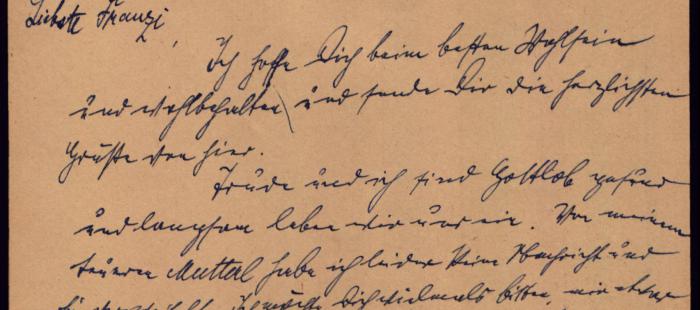 Liebste Franzi,
Ich hoffe Dich beim besten Wohlsein
und wohlbehalten und sende Dir die herzlichsten
Grüße von hier.
Trude und ich sind Gottlob gesund
und langsam leben wir uns ein. Von meinem
teueren Muttal habe ich leider keine Nachricht und
Dich vielmals bitten, mir etwas